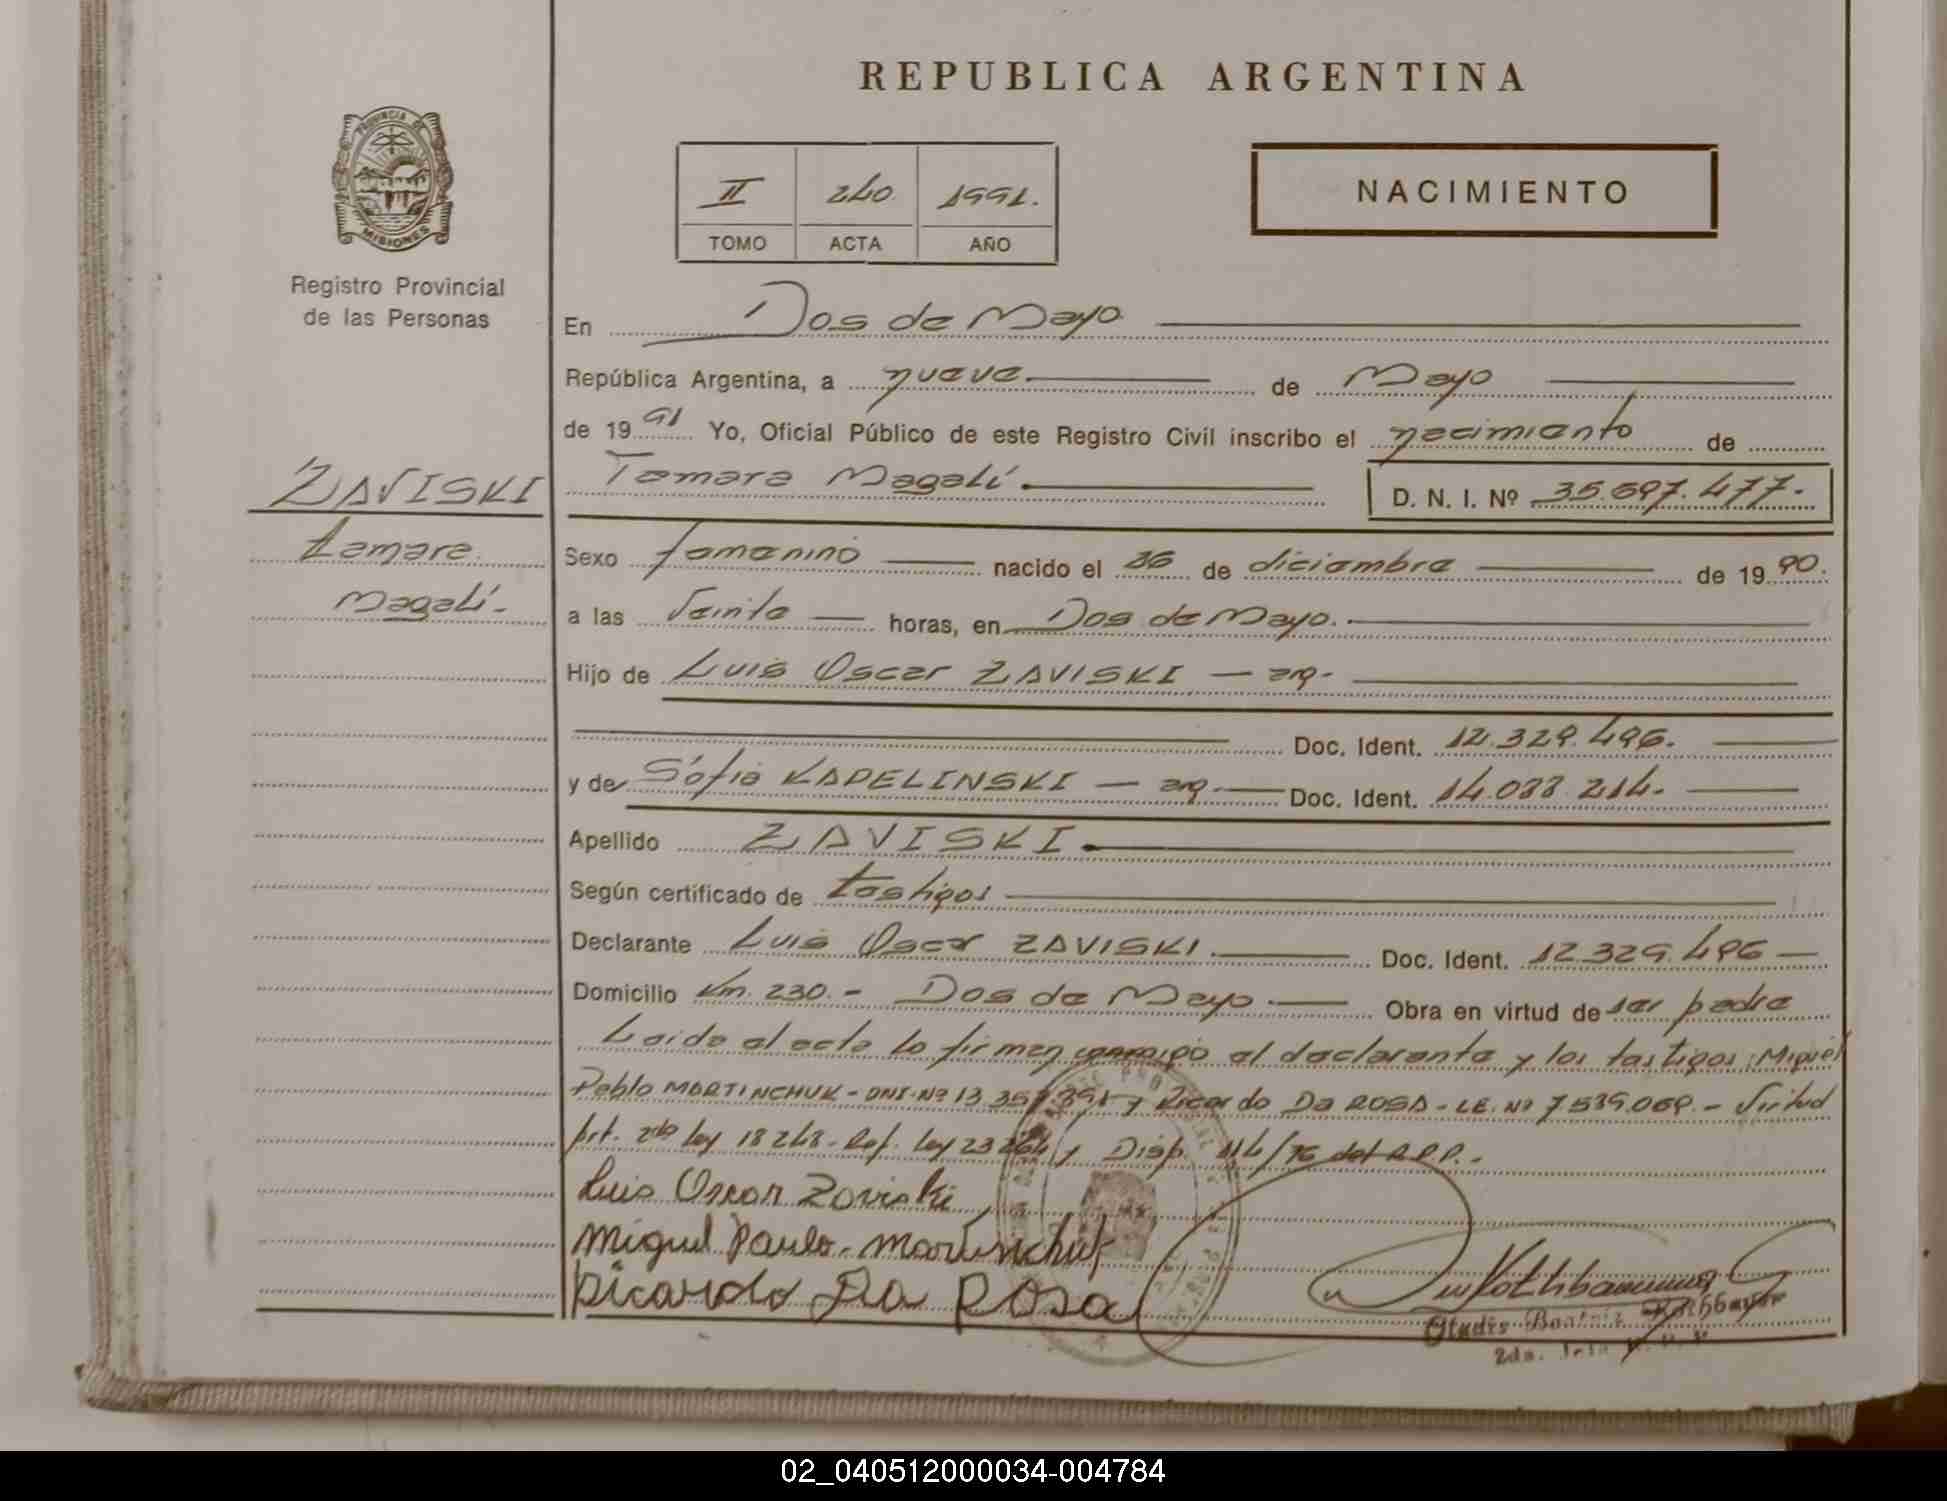 REPUBLICA ARGENTINA
PROVINCIA DE
MISIONES
Registro Provincial
de las Personas
II 240. 1991.
TOMO ACTA AÑO
NACIMIENTO
En Dos de Mayo
República Argentina, a nueve de Mayo
de 1991 Yo, Oficial Público de este Registro Civil inscribo el nacimiento de
Tamara Magalí. D. N. I. Nº 35.697.477.
ZAVISKI
tamara
Magalí.
Sexo femenino nacido el de diciembre de 1990.
a las Veinte horas, en Dos de Mayo.
Hijo de Luis Oscar ZAVISKI - arg.
Doc. Ident. 12.329.496.
y de Sofia KAPELINSKI - arg. Doc. Ident. 14.088.214.
Apellido ZAVISKI.
Según certificado de testigos
Declarante Luis Oscar ZAVISKI. Doc. Ident. 12.329.496
Domicilio Km. 230. - Dos de Mayo. Obra en virtud de ser padre
Leida el acta la firman conmigo el declarante y los testigos: Miguel
Pablo MARTINCHUK - DNI. Nº y Ricardo Da ROSA - LE. Nº 7539.069. - Virtud
Art. 2do ley 18248 - Ref. ley 23264 y Disp. 114/76 del R.P.P. -
Luis Oscar Zaviski
Miguel Paulo. Martinchuk
Ricardo Da Rosa
Gladis Beatriz
2da. Jefe
02_040512000034-004784